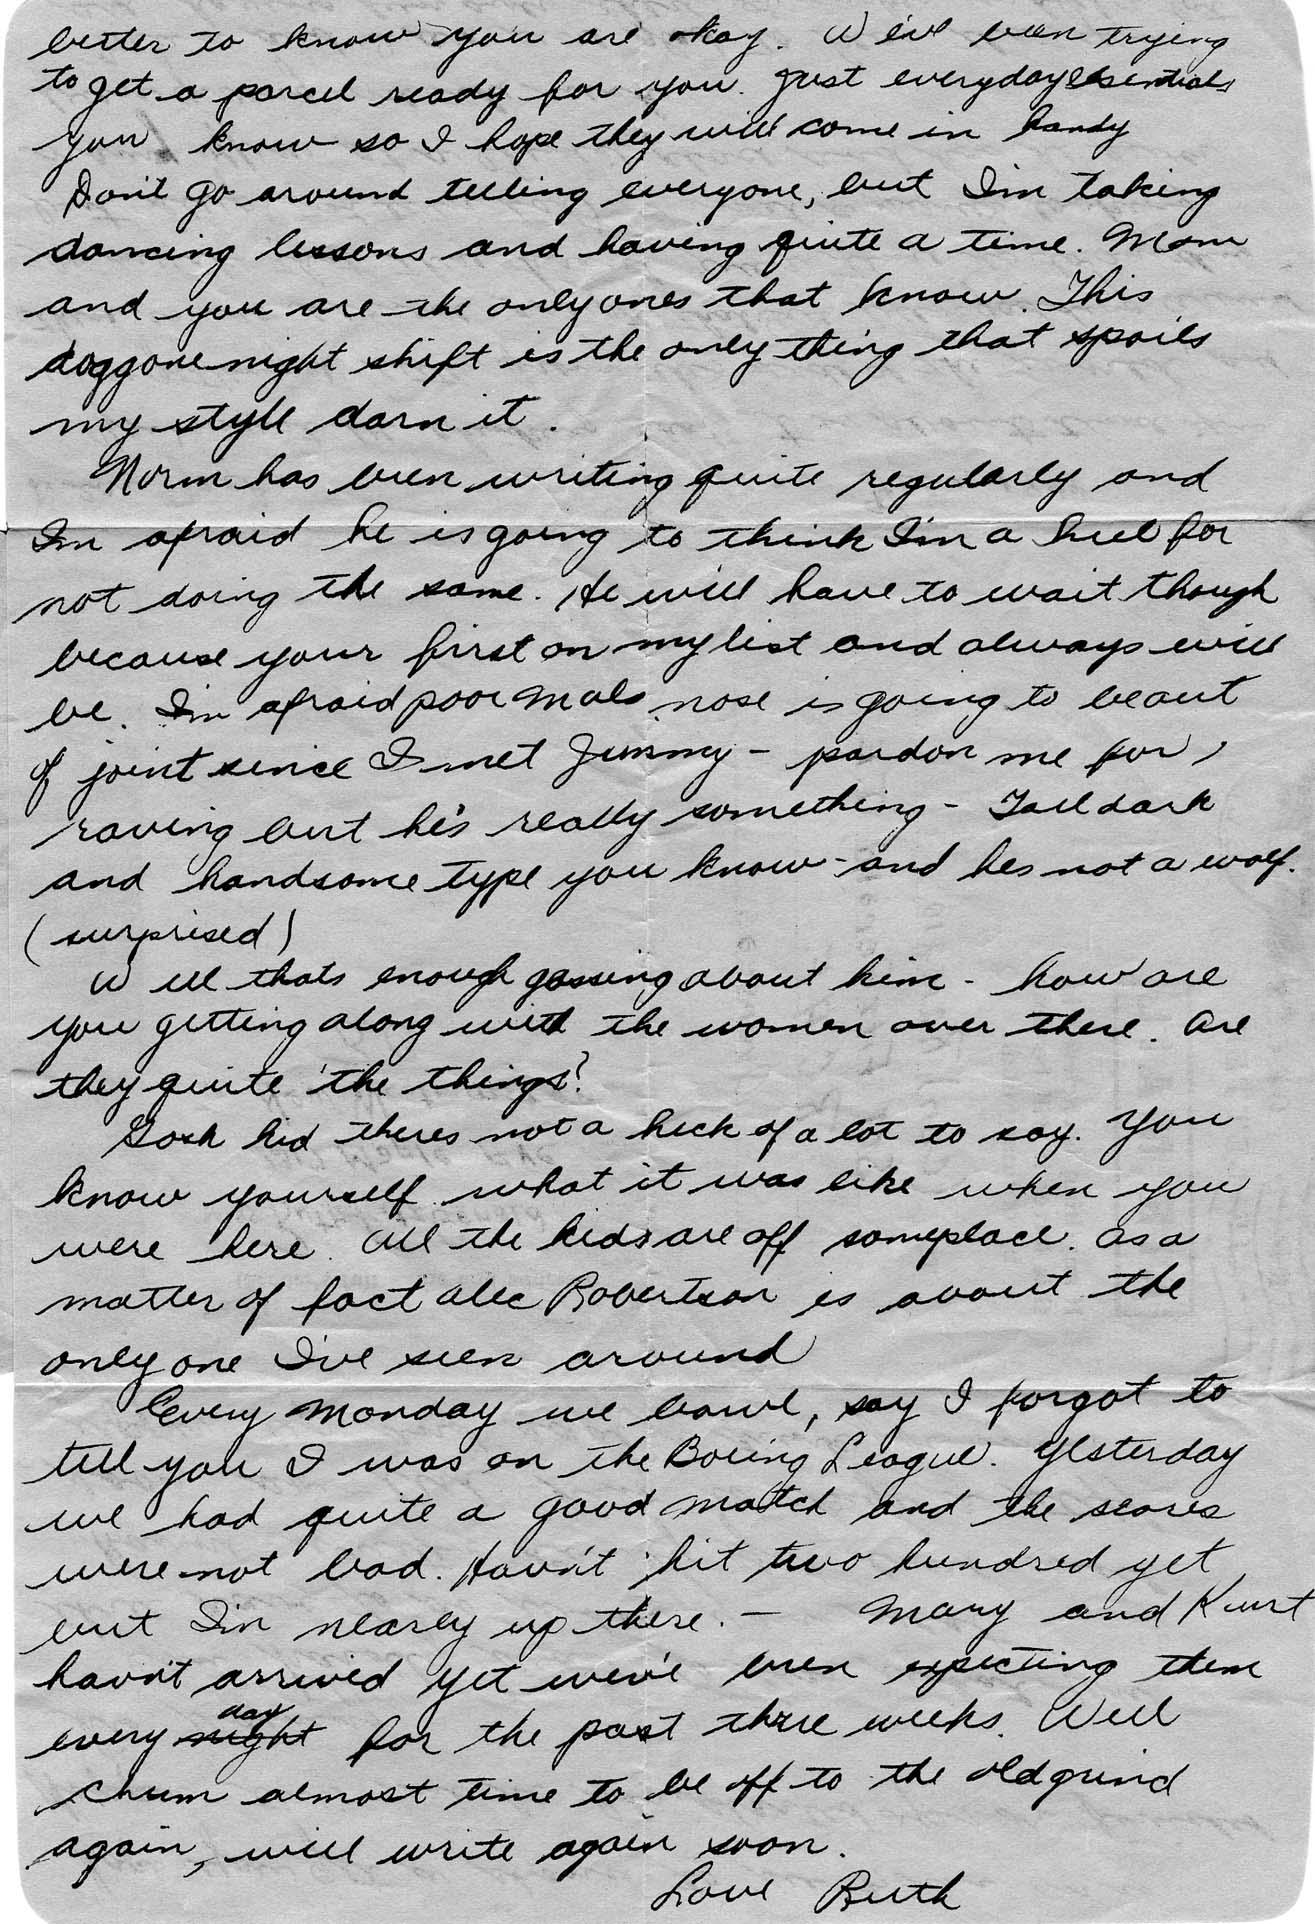 better to know you are okay. We've been trying
to get a parcel ready for you. Just everyday essentials
you know so I hope they will come in handy
Don't go around telling everyone, but I'm taking
dancing lessons and having quite a time. Mom
and you are the only ones that know. This
doggone night shift is the only thing that spoils
my style darn it.
Norm has been writing quite regularly and
I'm afraid he is going to think I'm a heel for
not doing the same. He will have to wait though
because your first on my list and always will
be. I'm afraid poor Mals nose is going to be out
of joint since I met Jimmy - pardon me for
raving but he's really something - Tall dark
and handsome type you know - and hes not a wolf.
(surprised)
Well thats enough gassing about him - how are
you getting along with the women over there. Are
they quite 'the things?
Gosh kid theres not a heck of a lot to say. You
know yourself what it was like when you
were here. All the kids are off someplace. As a
matter of fact Alec Robertson is about the
only one I've seen around
Every Monday we bowl, say I forgot to
tell you I was on the Boeing League. Yesterday
we had quite a good match and the scores
were not bad. Havn't hit two hundred yet
but I'm nearly up there. - Mary and Kurt
havn't arrived yet weve been expecting them
every night day for the past three weeks. Well
chum almost time to be off to the old grind
again, will write again soon.
Love Ruth